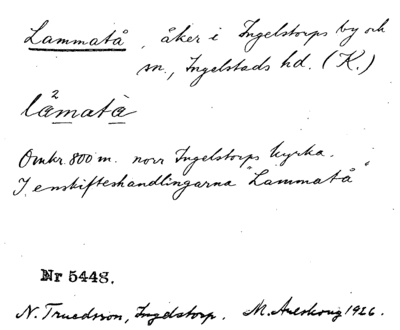 Lammatå, åker i Ingelstorps by och
sn., Ingelstads hd. (K.)
lamatà
Omkr. 800 m. norr Ingelstorps kyrka.
I enskifteshandlingarna "Lammatå"
Nr 5448.
N. Truedsson, Ingelstorp. M. Areskoug 1926.